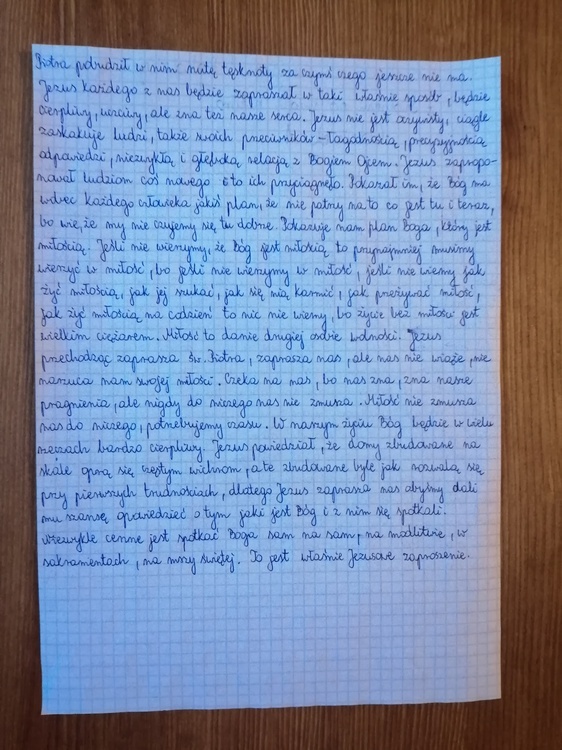 Piotra pobudził w nim nutę tęsknoty za czymś czego jeszcze nie ma.
Jezus każdego z nas będzie zapraszał w taki właśnie sposób, będzie
cierpliwy, uczciwy, ale zna też nasze serca. Jezus nie jest oczywisty, ciągle
zaskakuje ludzi, także swoich przeciwników - łagodnością, precyzyjnością
odpowiedzi, niezwykłą i głęboką relacją z Bogiem Ojcem. Jezus zapropo-
nował ludziom coś nowego i to ich przyciągnęło. Pokazał im, że Bóg ma
wobec każdego człowieka jakiś plan, że nie patrzy na to co jest tu i teraz,
bo wie, że my nie czujemy się tu dobrze. Pokazuje nam plan Boga, który jest
miłością. Jeśli nie wierzymy, że Bóg jest miłością to przynajmniej musimy
wierzyć w miłość, bo jeśli nie wierzymy w miłość, jeśli nie wiemy jak
żyć miłością, jak jej szukać, jak się nią karmić, jak przeżywać miłość,
jak żyć miłością na codzień to nic nie wiemy, bo życie bez miłości jest
wielkim ciężarem. Miłość to danie drugiej osobie wolności. Jezus
przechodząc zaprasza św. Piotra, zaprasza nas, ale nas nie wiąże, nie
narzuca nam swojej miłości. Czeka na nas, bo nas zna, zna nasze
pragnienia, ale nigdy do niczego nas nie zmusza. Miłość nie zmusza
nas do niczego, potrzebujemy czasu. W naszym życiu Bóg będzie w wielu
rzeczach bardzo cierpliwy. Jezus powiedział, że domy zbudowane na
skale oprą się częstym wichrom, a te zbudowane byle jak rozwalą się
przy pierwszych trudnościach, dlatego Jezus zaprasza nas abyśmy dali
mu szansę opowiedzieć o tym jaki jest Bóg i z nim się spotkali.
Niezwykle cenne jest spotkać Boga sam na sam, na modlitwie, w
sakramentach, na mszy świętej. To jest właśnie Jezusowe zaproszenie.